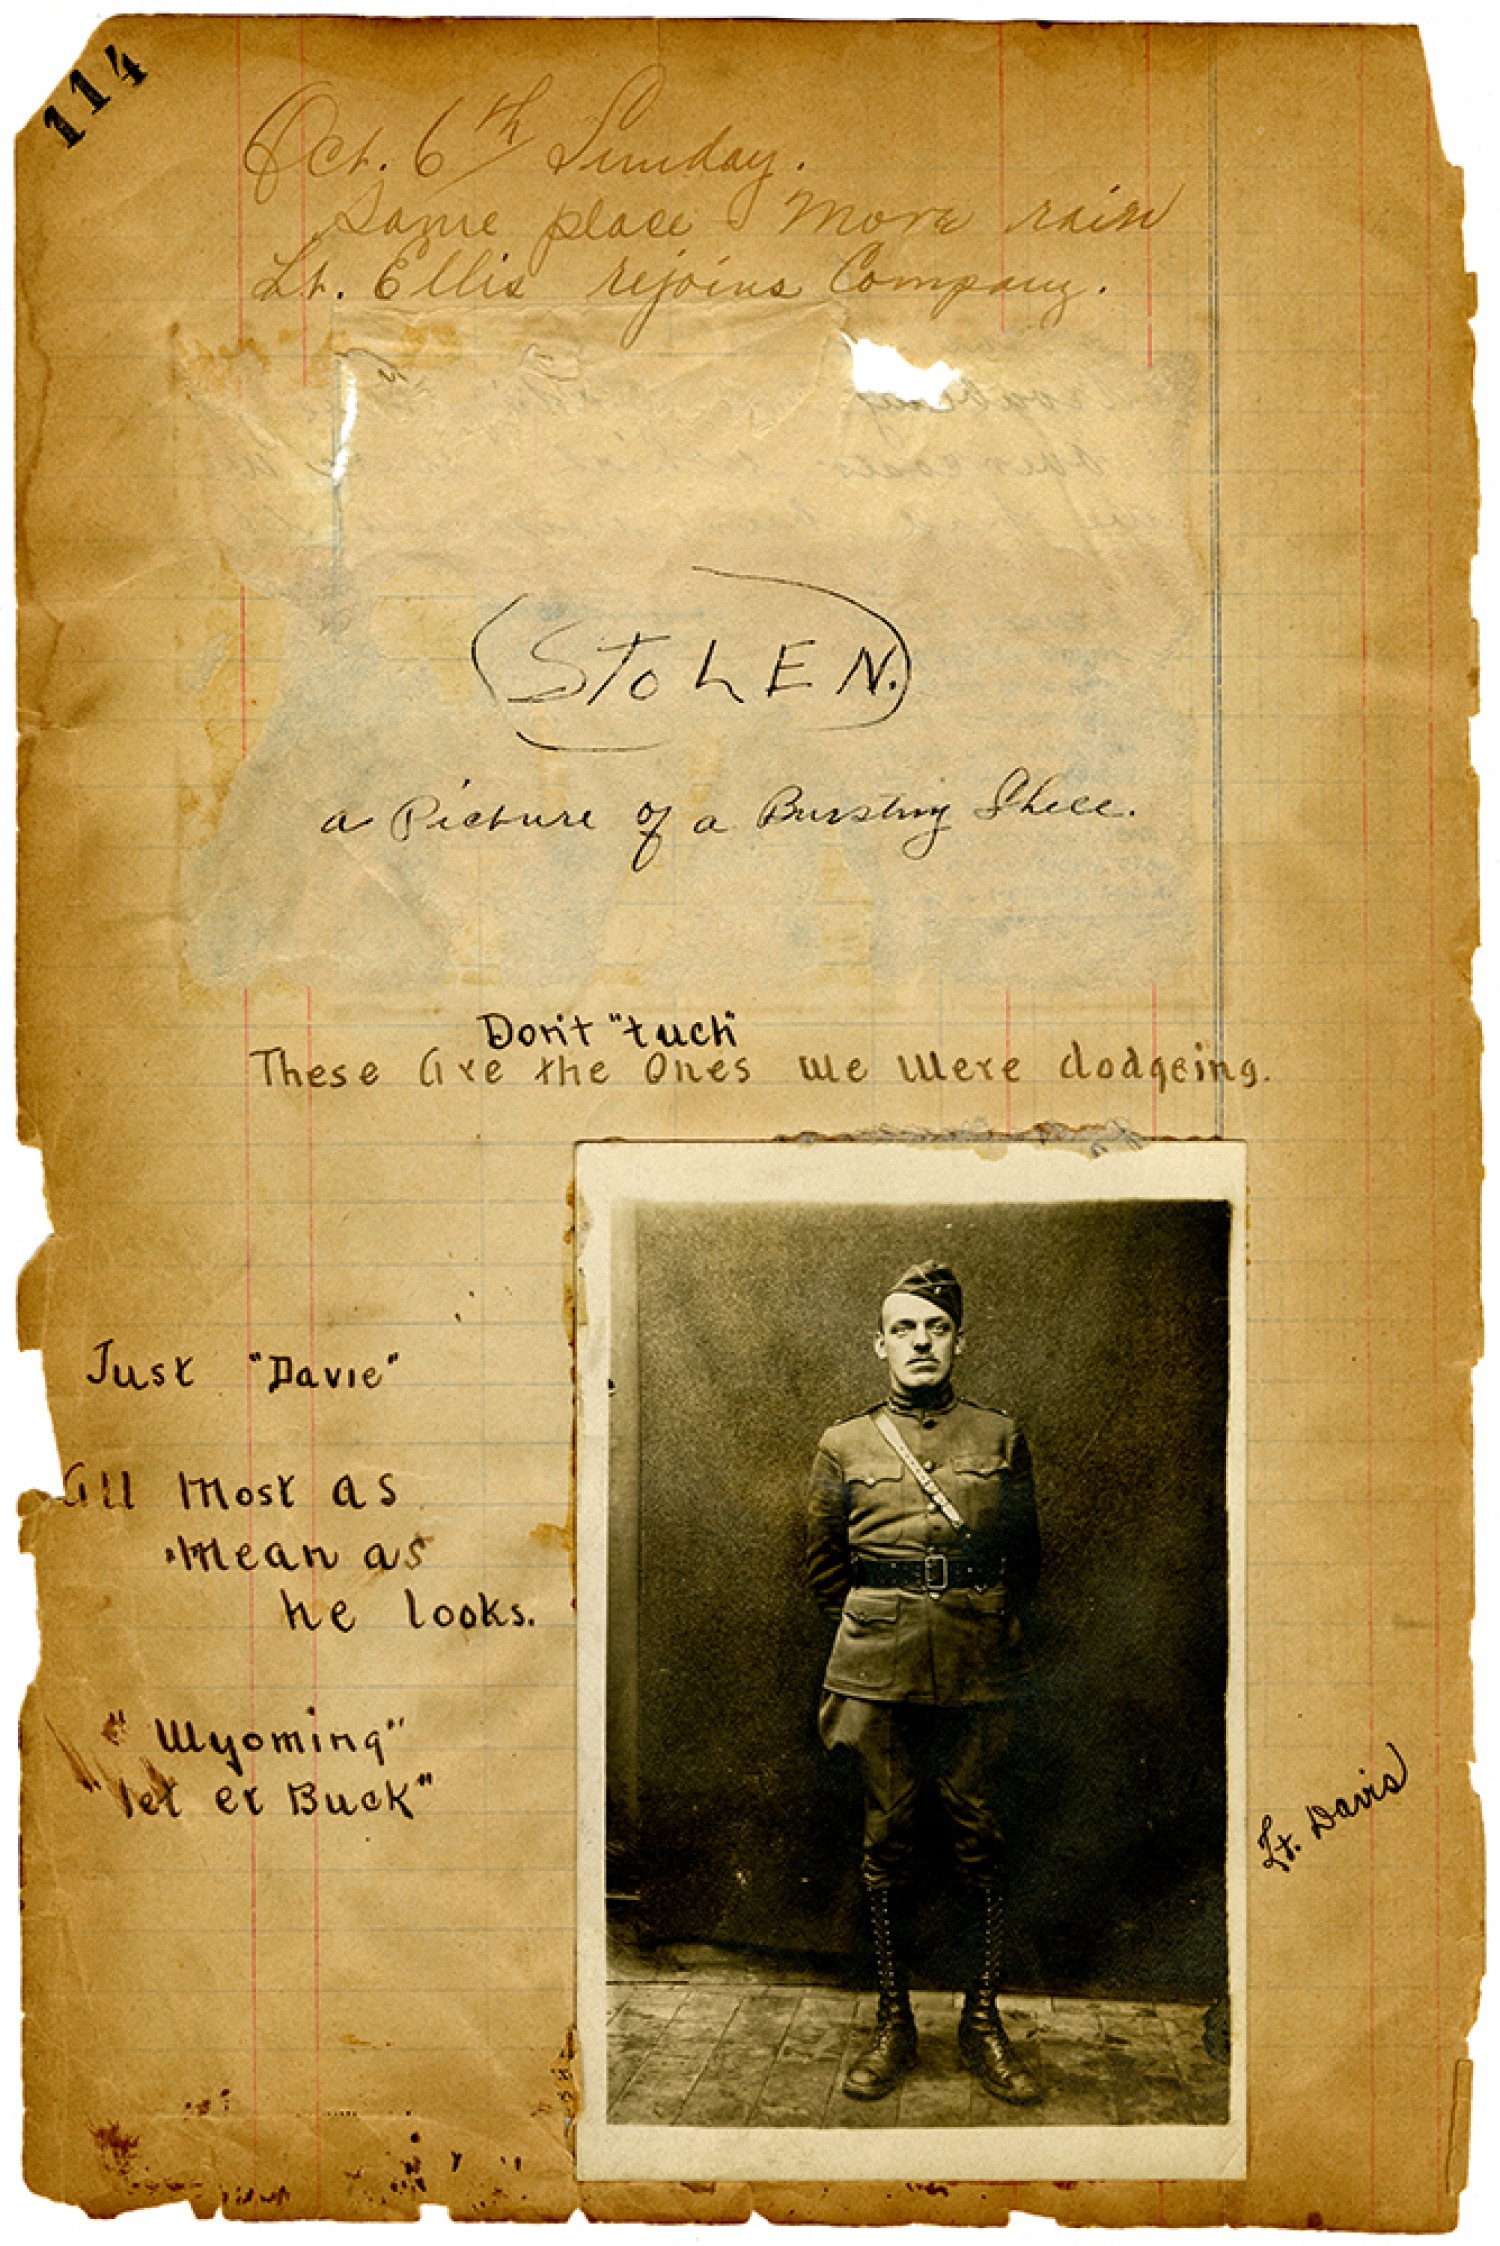 114
Oct. 6th Sunday.
Same place More rain
Lt. Ellis rejoins Company.
STOLEN.
a Picture of a Bursting Shell.
Don't "tuch"
These Are the Ones we were dodgeing.
Just "Davie"
All Most as
Mean as
he looks.
"Wyoming"
"let er Buck"
Lt. Davis